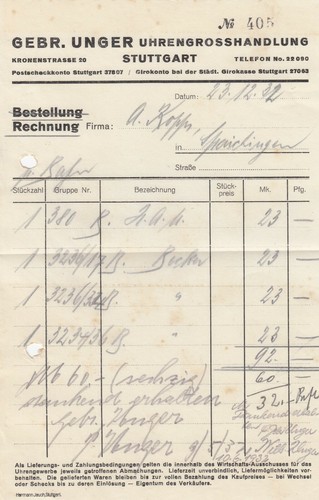 № 405
GEBR. UNGER UHRENGROSSHANDLUNG
KRONENSTRASSE 20 STUTTGART TELEFON No. 22090
Postscheckkonto Stuttgart 37807 / Girokonto bei der Städt. Girokasse Stuttgart 27063
Datum: 23.12.32
Bestellung
Rechnung Firma: A. Kopp,
in Spaichingen
p. Bahn Straße
Stückzahl Gruppe Nr. Bezeichnung Stück-preis Mk. Pfg.
1 380 R. H.A.U. 23 —
1 3236/ R. Becker 23 —
1 3236/ R. " 23 —
1 R. " 23 —
92.—
Mb 60.- (sechzig) 60.—
dankend erhalten 32.-
Gebr. Unger
Unger
Als Lieferungs- und Zahlungsbedingungen gelten die innerhalb des Wirtschafts-Ausschusses für das
Uhrengewerbe jeweils getroffenen Abmachungen. Lieferzeit unverbindlich, Liefermöglichkeiten vorbe-
halten. Die gelieferten Waren bleiben bis zur vollen Bezahlung des Kaufpreises — bei Wechsel
oder Schecks bis zu deren Einlösung — Eigentum des Verkäufers.
Hermann Jauch, Stuttgart.